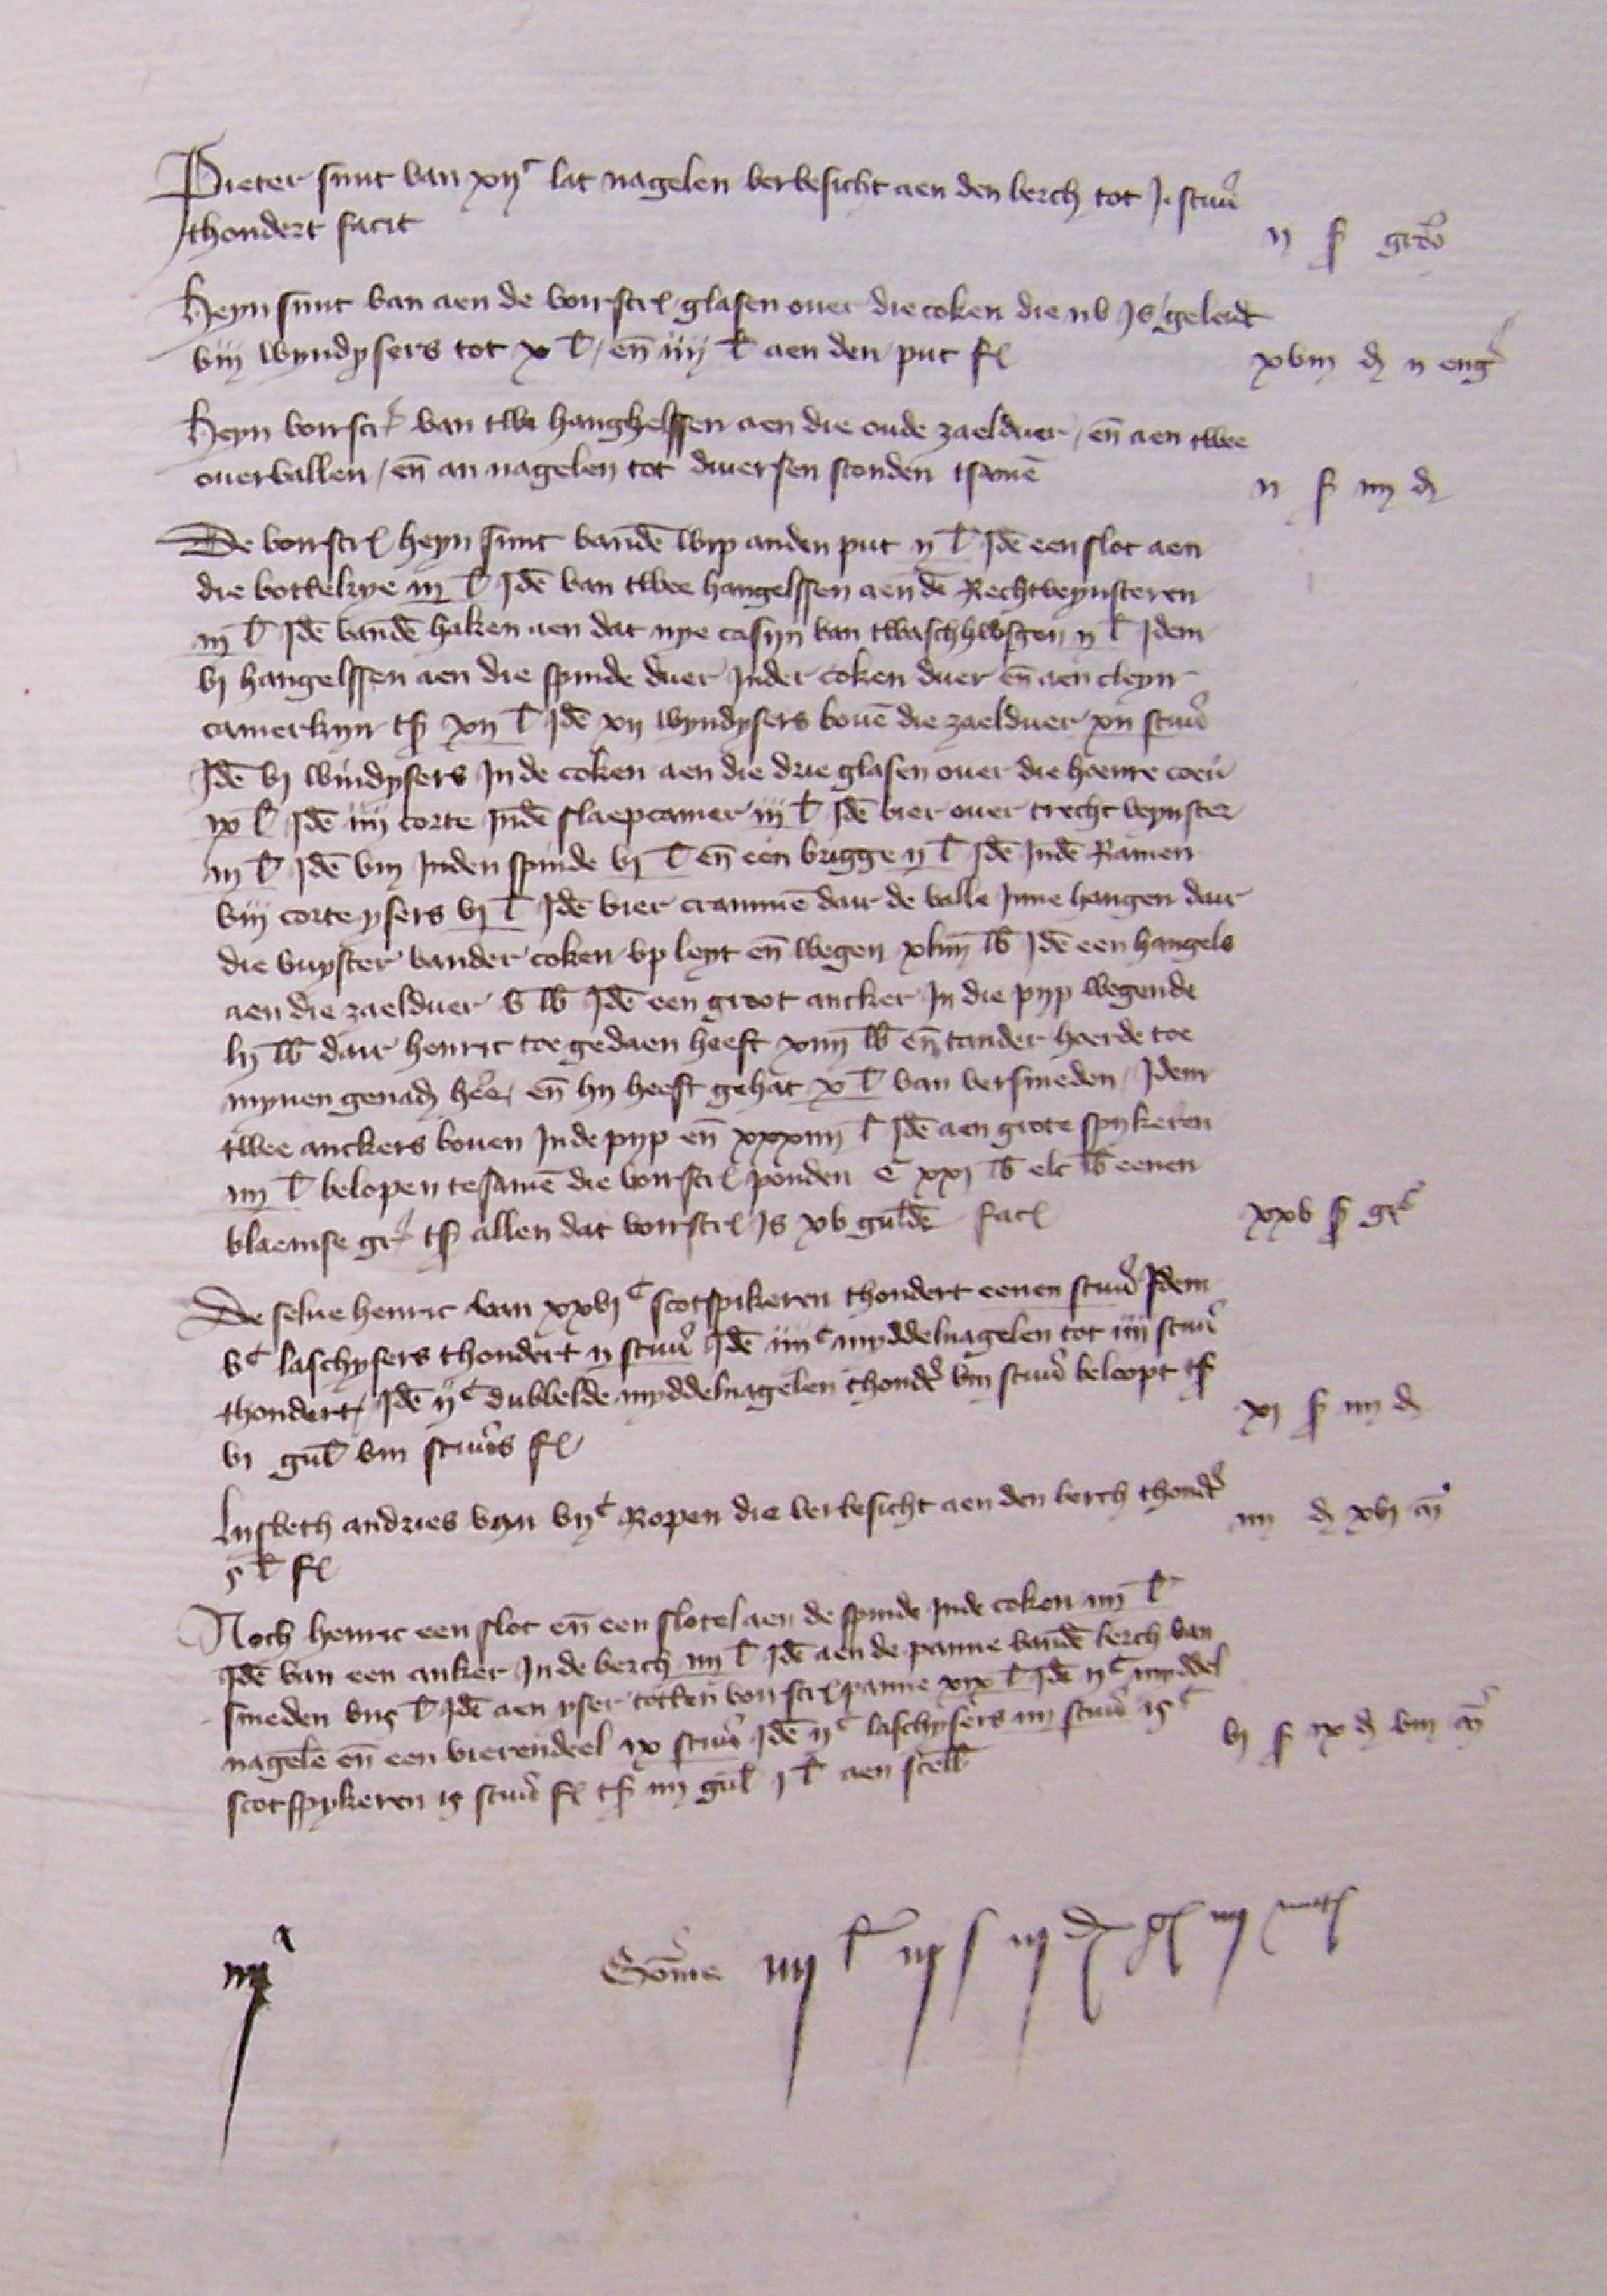 Pieter smit van xijc lat nagelen verbesicht aen den berch tot j stuu'
thondert facit
ij s gro
Heyn smit van aen de vorrscr glasen ouer die coken die nv js geleit
viij wyndysers tot x l, en iiij l aen den put f
xviij d ij eng
Heyn vorrscr van twe hanghelssen aen die oude zaelduer, en aen twee
ouervallen, en an nagelen tot diuersen stonden tsame
ij s iiij d
De vorrscr heyn smit vande wip anden put ij l Ide een slot aen
die bottelrye iij l Ide van twee hangelssen aen de Rechtveynsteren
iij l Ide vande haken aen dat nye casijn van twaschhwsgen ij l Idem
vj hangelssen aen die spinde duer jnder coken duer en aen cleyn
camerkyn ts xij l Ide xij wyndysers boue die zaelduer xij stuu'
Ide vj windysers Jn de coken aen die drie glasen ouer die haenre coeu
ix l Ide iiij corte Jnde slaepcamer iij l Ide vier ouer trecht veynster
iij l Ide viij Jnden spinde vj l en een brigge ij l Ide Jnde Ramen
viij corte ysers vj l Ide vier cramme dair de valle Jnne hangen dair
die vuyster vander coken vp leyt en wegen xliiij lb Ide een hangels
aen die zaelduer v lb Ide een groot ancker Jn die pyp wegende
lij lb dair henric toe gedaen heeft xiiij lb en tander hoerde toe
mynen genad her, en hij heeft gehat x l van versmeden Jdem
twee anckers bouen Jnde pyp en xxxiiij l Ide aen grote spykeren
iiij l belopen tesame die vorrscr ponden c xxj lb elc lb eenen
vlaemse gr ts allen dat vorrscr Js xv gulde fac
xxv s gr
De selue henric van xxvjc scotspikeren thondert eenen stuu' Jdem
vc laschysers thondert ij stuu' Ide iiijc myddelnagelen tot iiij stuu'
thondert, Ide ijc dubbelde myddelnagelen thonde' viij stuu' beloopt ts
xj s iiij d
vj gul viij stuu's f
Lijsbeth andries van vijc Ropen die verbesicht aen den berch thond'
iiij d xvj m
l f
Noch henric een slot en een slotel aen de spinde Jnde coken iiij l
Ide van een anker Jn de berch iiij l Ide aen de panne vande berch van
smeden l Ide aen yser totten vorrscr panne xix l Ide ijc myddel
nagele en een vierendeel ix stuu' Ide ijc laschysers iiij stuu'
scotspykeren stuu' f ts iiij gul j l aen
vj s ix d viij m
Some iiij l iij s iij d